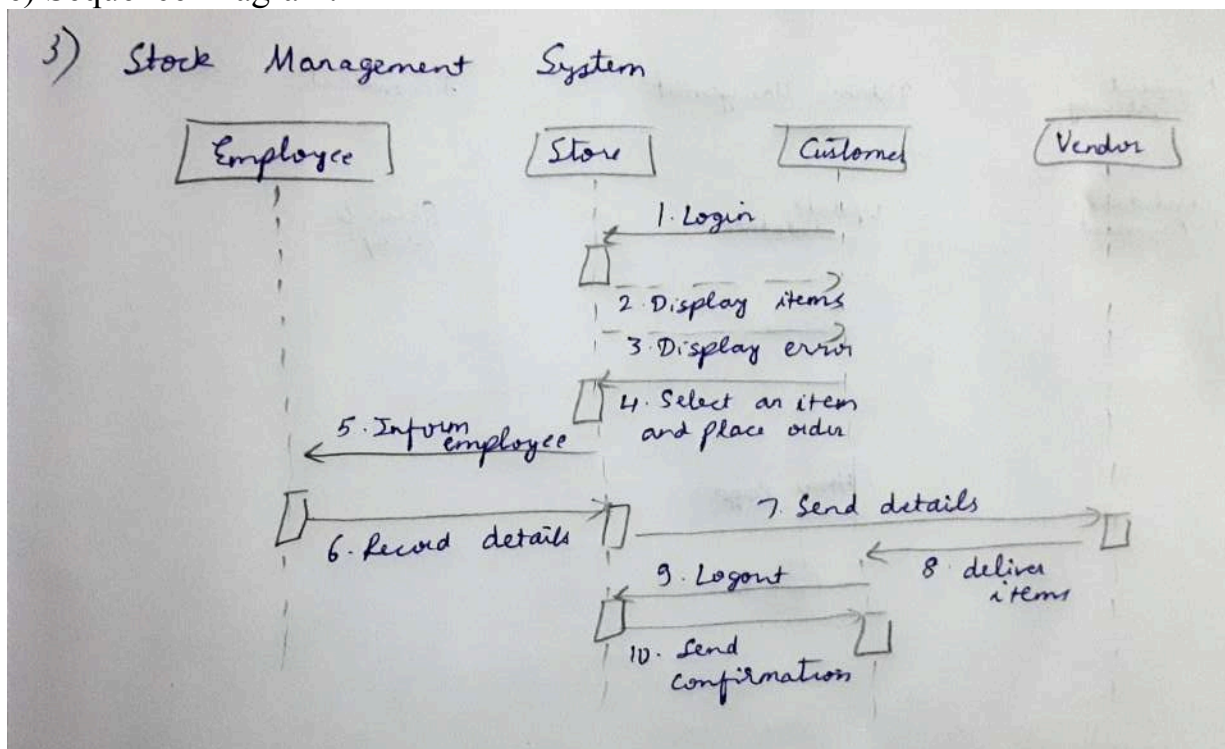 3) Stock Management System
Employee Store Customer Vendor
1. Login
2. Display items
3. Display error
4. Select an item
and place order
5. Inform
employee
6. Record details
7. Send details
8. deliver
items
9. Logout
10. Send
confirmation